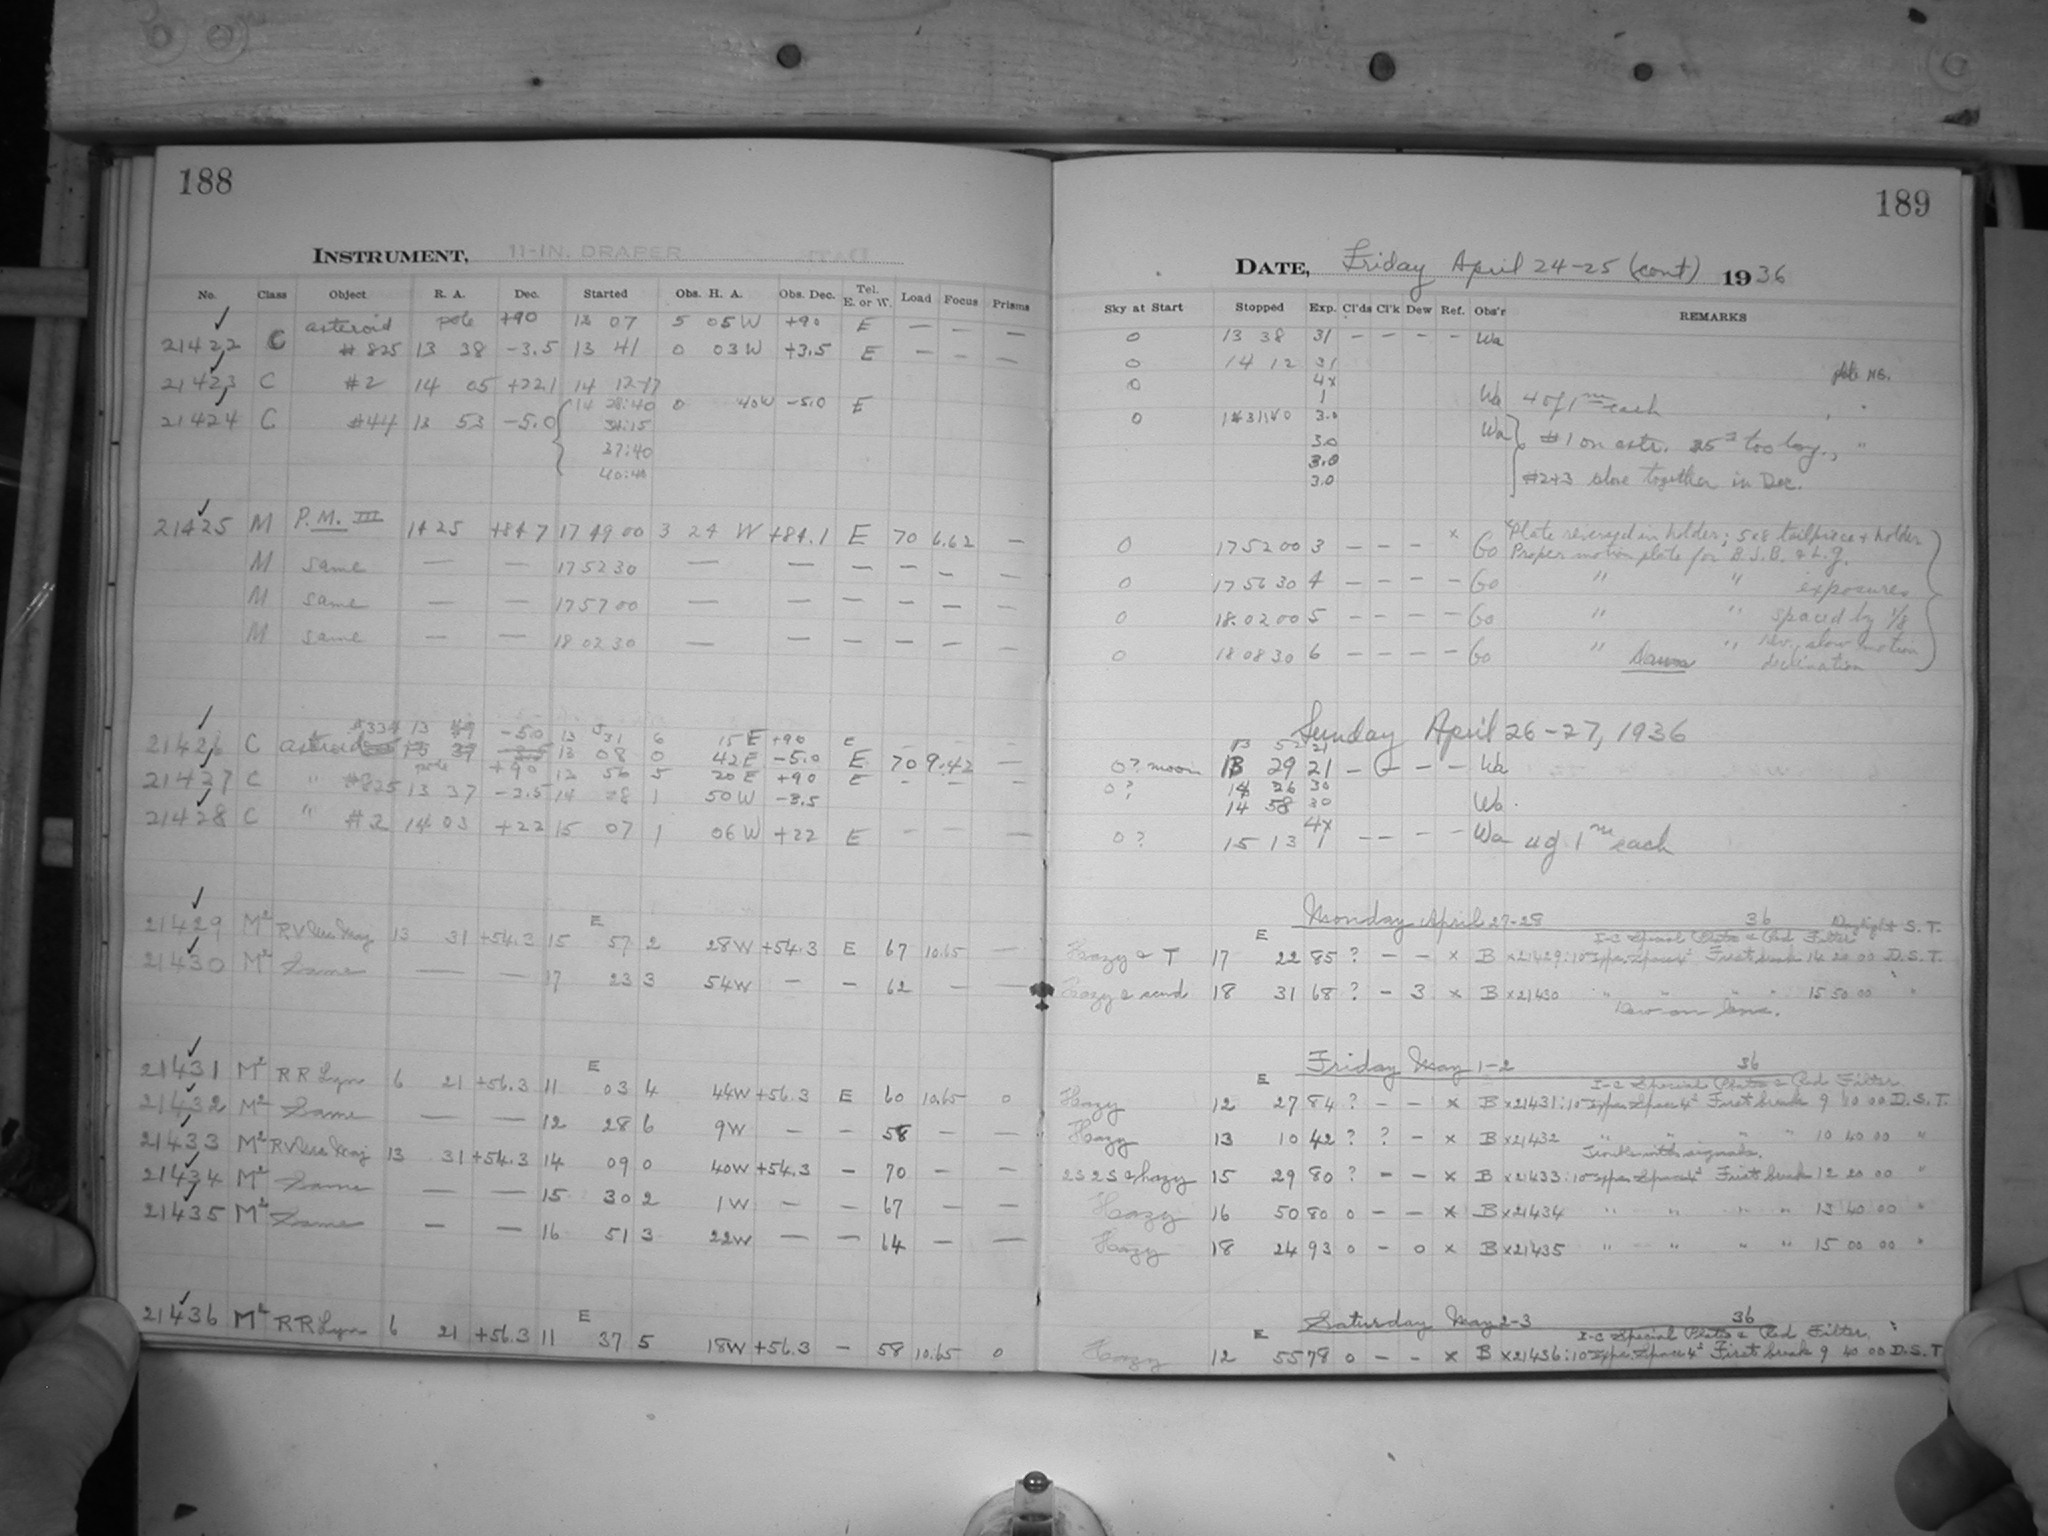 188
INSTRUMENT, 11-IN. DRAPER
No. Class Object R. A. Dec. Started Obs. H. A. Obs. Dec. Tel. E. or W. Load Focus Prisms
asteroid pole +90 12 07 5 05W +90 E — — —
21422 C # 825 13 38 -3.5 13 41 0 03W +3.5 E — — —
21423 C #2 14 05 +22.1 14 12-17
21424 C #44 13 53 -5.0 14 28:40 0 40W -5.0 E
34:15
37:40
40:40
21425 M P.M. III 14 25 +84 7 17 49 00 3 24 W +84.1 E 70 6.62 —
M same — — 17 52 30 — — — — — —
M same — — 17 57 00 — — — — — —
M same — — 18 02 30 — — — — — —
13 -5.0 13 31 6 15 E +90 E
21426 C asteroid 13 08 0 42E -5.0 E 70 9.42 —
pole +90 12 56 5 20E +90 E — — —
21427 C " #825 13 37 -3.5 14 28 1 50W -3.5
21428 C " #2 14 03 +22 15 07 1 06W +22 E — — —
21429 M² RV Urs Maj 13 31 +54.3 15 E 57 2 28W +54.3 E 67 10.65 —
21430 M² Same — — 17 23 3 54W — — 62 — —
21431 M² RR Lyn 6 21 +56.3 11 E 03 4 44W +56.3 E 60 10.65 0
21432 M² Same — — 12 28 6 9W — — 58 — —
21433 M² RV Urs Maj 13 31 +54.3 14 09 0 40W +54.3 — 70 — —
21434 M² Same — — 15 30 2 1W — — 67 — —
21435 M² Same — — 16 51 3 22W — — 64 — —
21436 M² RR Lyn 6 21 +56.3 11 E 37 5 18W +56.3 — 58 10.65 0
189
DATE, Friday April 24-25 (cont) 1936
Sky at Start Stopped Exp. Cl'ds Cl'k Dew Ref. Obs'r REMARKS
0 13 38 31 — — — — Wa
0 14 12 31
0 4x 1 Wa 4 of 1m each
0 14 31:40 3.0 Wa #1 on astr. 25s too long., "
3.0
3.0
3.0 #2+3 close together in Dec.
0 17 52 00 3 — — — x Go Plate reversed in holder; 5x8 tailpiece + holder
Proper motion plate for B.J.B. & L.J.
0 17 56 30 4 — — — — Go " " exposures
0 18.02 00 5 — — — — Go " " spaced by 1/8
0 18 08 30 6 — — — — Go " " rev. slow motion
Dawn declination
Sunday April 26-27, 1936
13 52 21
0? moon 13 29 21 — — — — Wa
0? 14 26 30
14 58 30 Wa.
0? 15 13 4x 1 — — — — Wa 4 of 1m each
Monday April 27-28 36 Daylight S. T.
I-C Special Plate & Red Filter
Hazy & T E 17 22 85 ? — — x B x21429: 10 exps. Space 4² First break 14 20 00 D.S.T.
Hazy & wind 18 31 68 ? — 3 x B x21430 " " " " 15 50 00 "
Dew on lens.
Friday May 1-2 36
I-C Special Plate & Red Filter
Hazy E 12 27 84 ? — — x B x21431: 10 exps. Space 4² First break 9 10 00 D.S.T.
Hazy 13 10 42 ? ? — x B x21432 " " " " 10 40 00 "
Trouble with signals.
2S 2S & hazy 15 29 80 ? — — x B x21433: 10 exps. Space 4² First break 12 20 00 "
Hazy 16 50 80 0 — — x B x21434 " " " " 13 40 00 "
Hazy 18 24 93 0 — 0 x B x21435 " " " " 15 00 00 "
Saturday May 2-3 36
I-C Special Plate & Red Filter
Hazy E 12 55 78 0 — — x B x21436: 10 exps. Space 4² First break 9 40 00 D.S.T.